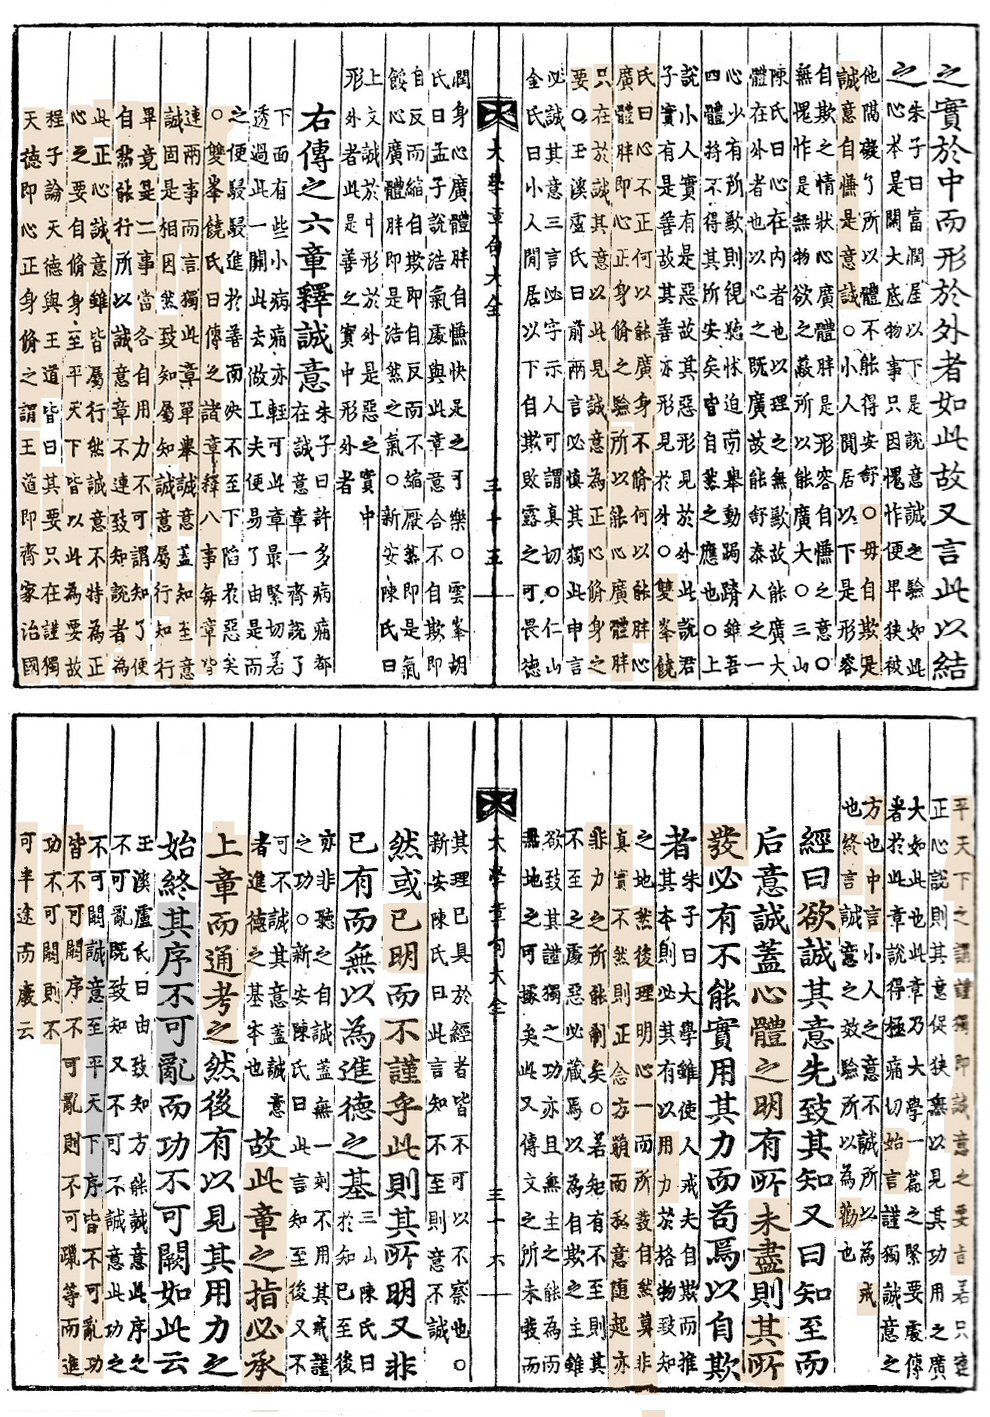 之實於中而形於外者如此故又言此以結
之
朱子曰富潤屋以下是說意誠之驗如此
心本是闊大底物事只因愧怍便卑狹被
他隔礙了所以體不能得安舒○毋自欺是
誠意自慊是意誠○小人閒居以下是形容
自欺之情狀心廣體胖是形容自慊之意○
無愧怍是無物欲之蔽所以能廣大○三山
陳氏曰心在內者也以理之無歉故能廣大
體在外者也以心之既廣故能舒泰人之一
心少有所歉則視聽怵迫而舉動跼蹐雖吾
四體持不得其所安矣皆自然之應也○上
說小人實有是惡故其惡形見於外此說君
子實有是善故其善亦形見於外○雙峯饒
氏曰心不正何以能廣身不脩何以能體胖
廣體胖即心正身脩之驗所以能心廣體胖
只在於誠其意以此見誠意為正心脩身之
要○玉溪盧氏曰前兩言必慎其獨此申言
必誠其意三言必字示人可謂真切○仁山
金氏曰小人閒居以下自欺敗露之可畏德
大學章句大全 三十五
潤身心廣體胖自慊快足之可樂○雲峯胡
氏曰孟子說浩氣處與此章意合不自欺即
自反而縮自欺即是自反不縮厭然即是氣
餒心廣體胖即是浩然之氣○新安陳氏曰
上文誠於中形於外是惡之實中
形外者此是善之實中形外者
右傳之六章釋誠意
朱子曰許多病痛都
在誠意章一齊說了
下面有些小病痛亦輕可此章最緊切若
透過此一關此去做工夫便易了由是而
之便駸駸進於善而決不至下陷於惡矣
○雙峯饒氏曰傳之諸章釋八事每章皆
連兩事而言獨此章單舉誠意蓋知至意
誠固是相因然致知屬知誠意屬行知行
畢竟是二事當各自用力不可謂知了便
自然能行所以誠意章不連致知說者為
此正心誠意雖皆屬行然誠意不特為正
心之要自脩身至平天下皆以此為要故
程子論天德與王道皆曰其要只在謹獨
天德即心正身脩之謂王道即齊家治國
平天下之謂謹獨即誠意之要言若只連
正心說則其意促狹無以見其功用之廣
大如此也此章乃大學一篇之緊要處傳
者於此章說得極痛切始言謹獨誠意之
方也中言小人之意不誠所以為戒
也終言誠意之效驗所以為勸也
經曰欲誠其意先致其知又曰知至而
后意誠蓋心體之明有所未盡則其所
發必有不能實用其力而苟焉以自欺
者
朱子曰大學雖使人戒夫自欺而推
其本則必其有以用力於格物致知
之地然後理明心一而所發自然莫非
真實不然則正念方萌而私意隨起亦
非力之所能制矣○若知有不至則其
不至之處惡必藏焉以為自欺之主雖
欲致其謹獨之功亦且無主之能為而
無地之可據矣此又傳文之所未發而
大學章句大全 三十六
其理已具於經者皆不可以不察也○
新安陳氏曰此言知不至則意不誠
然或已明而不謹乎此則其所明又非
已有而無以為進德之基
三山陳氏曰
於知已至後
亦非聽之自誠蓋無一刻不用其戒謹
之功○新安陳氏曰此言知至後又不
可不誠其意蓋誠意
者進德之基本也
故此章之指必承
上章而通考之然後有以見其用力之
始終其序不可亂而功不可闕如此云
玉溪盧氏曰由致知方能誠意此序之
不可亂既致知又不可不誠意此功之
不可闕誠意至平天下序皆不可亂功
皆不可闕序不可亂則不可躐等而進
功不可闕則不
可半途而廢云